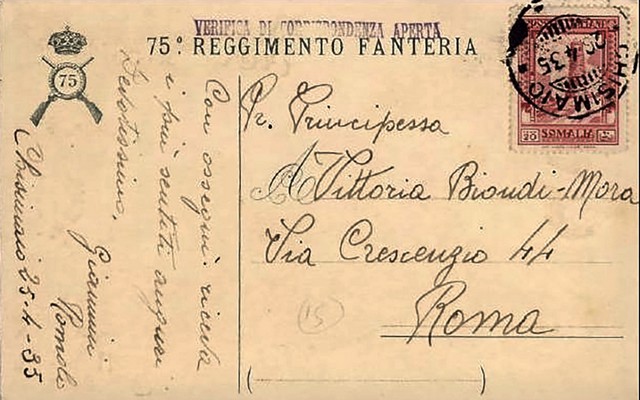 VERIFICA DI CORRISPONDENZA APERTA
75º REGGIMENTO FANTERIA
75
CHISIMAIO
26 4 35
SOMALIA
Con ossequi riceva
i più sentiti auguri
Devotissimo,
Giannini
Romolo
Chisimaio 25-4-35
Pr. Principessa
Vittoria Biondi-Mora
Via Crescenzio 44
Roma
15